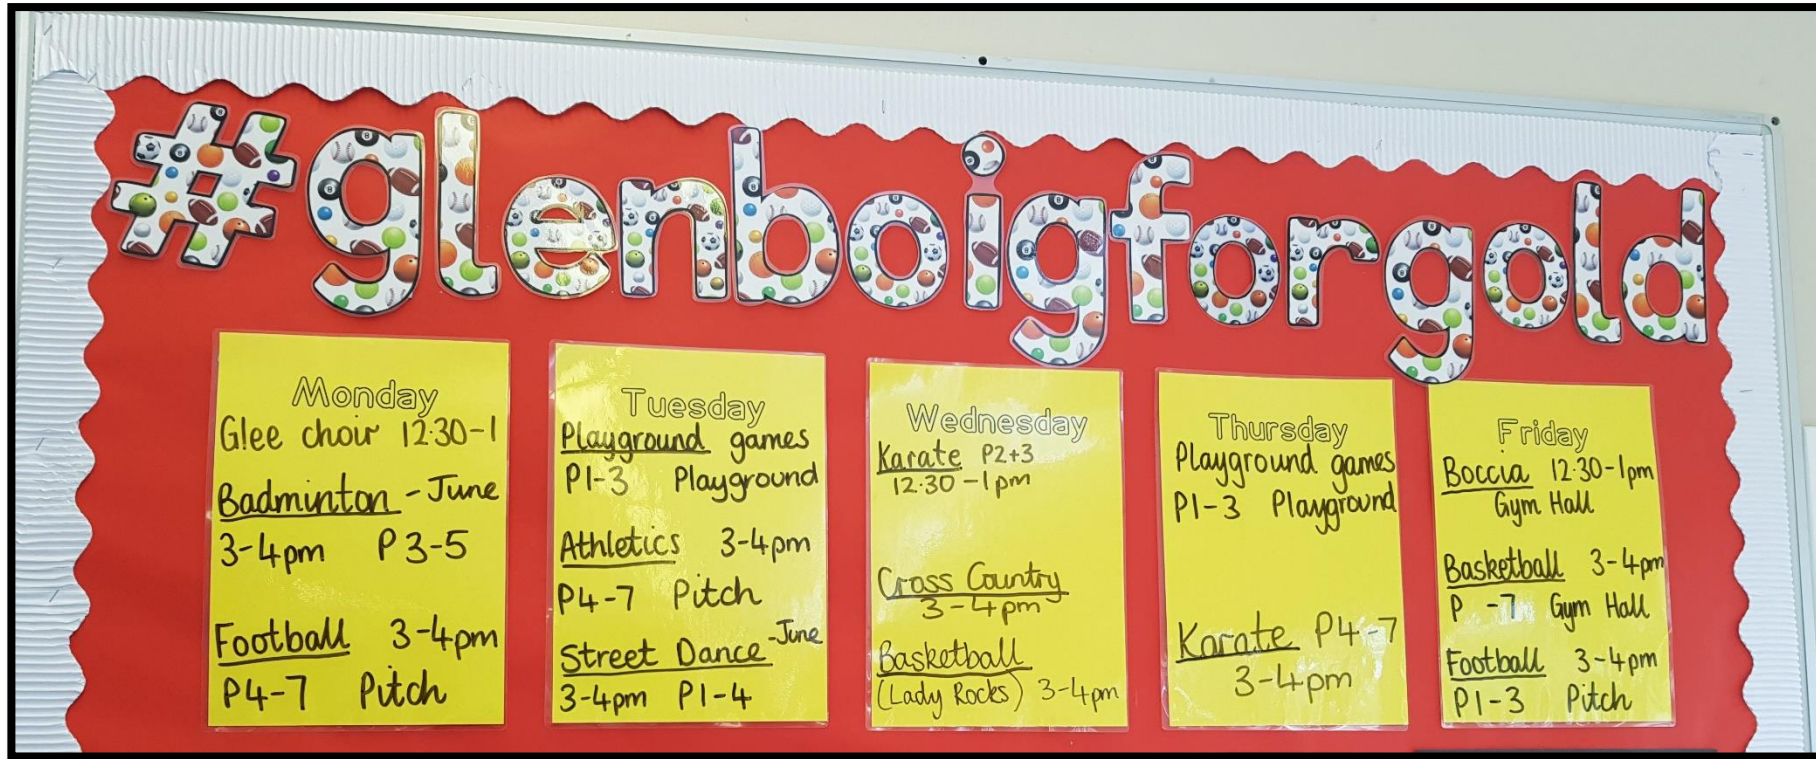 #glenboigforgold
Monday
Glee choir 12.30-1
Badminton - June
3-4pm P3-5
Football 3-4pm
P4-7 Pitch
Tuesday
Playground games
P1-3 Playground
Athletics 3-4pm
P4-7 Pitch
Street Dance -June
3-4pm P1-4
Wednesday
Karate P2+3
12.30 -1pm
Cross Country
3-4pm
Basketball
(Lady Rocks) 3-4pm
Thursday
Playground games
P1-3 Playground
Karate P4-7
3-4pm
Friday
Boccia 12.30-1pm
Gym Hall
Basketball 3-4pm
P -7 Gym Hall
Football 3-4pm
P1-3 Pitch